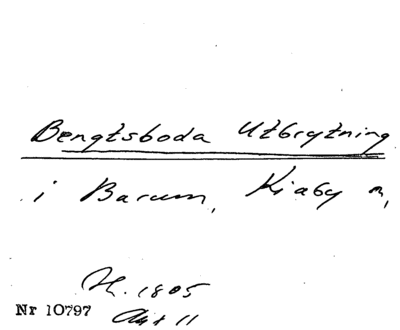 Bengtsboda Utbrytning
i Barum, Kiaby m,
H. 1805
Nr 10797 Akt 11